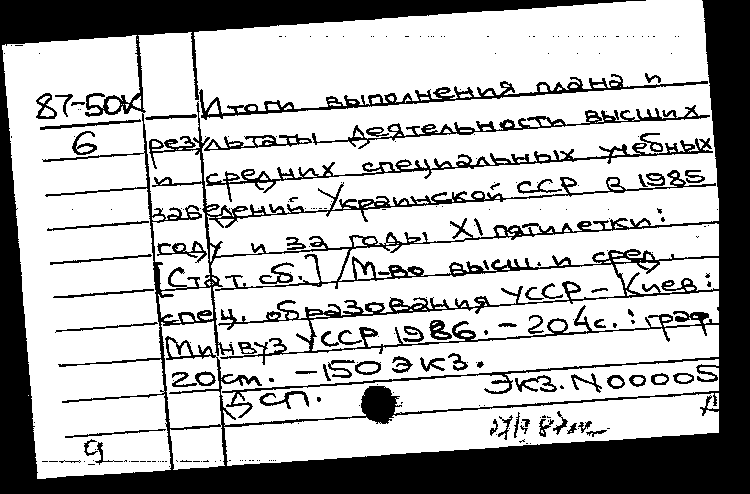 87-50К Итоги выполнения плана и
6 результаты деятельности высших
и средних специальных учебных
заведений Украинской ССР в 1985
году и за годы XI пятилетки:
[Стат. сб.] / М-во высш. и сред.
спец. образования УССР - Киев:
Минвуз УССР, 1986. - 204с.: граф.;
20 см. - 150 экз.
Экз. N 00005
ДСП.
9